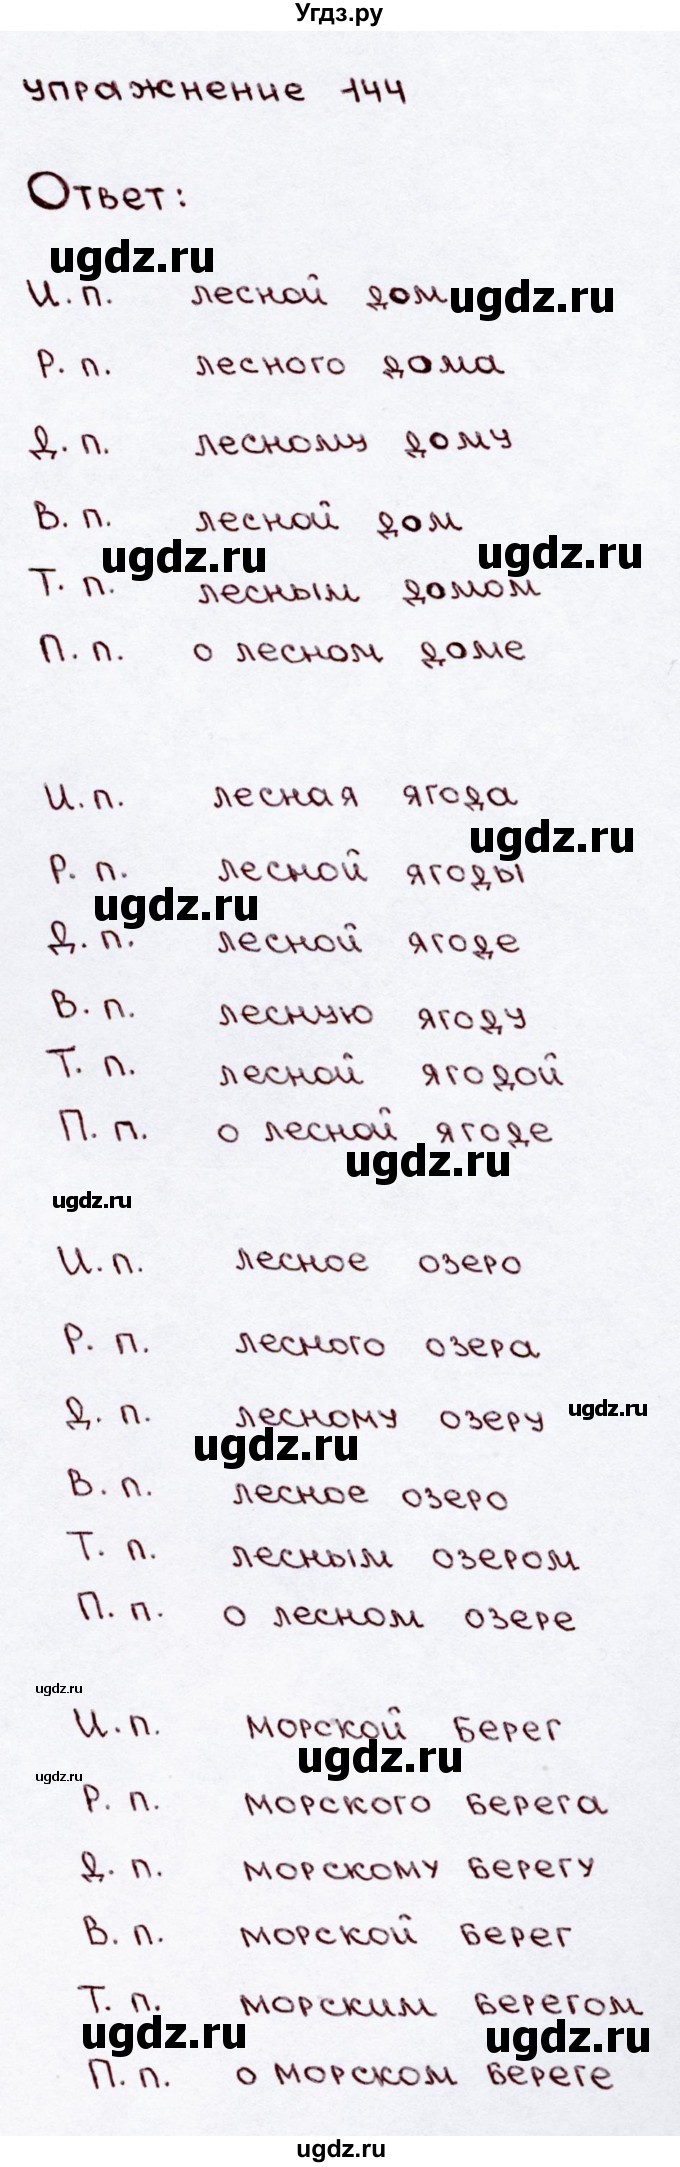 Угдз.ру
упражнение 144
Ответ:
ugdz.ru
И. п. лесной дом ugdz.ru
Р. п. лесного дома
Д. п. лесному дому
В. п. лесной дом
ugdz.ru ugdz.ru
Т. п. лесным домом
П. п. о лесном доме
И. п. лесная ягода
ugdz.ru
Р. п. лесной ягоды
ugdz.ru
Д. п. лесной ягоде
В. п. лесную ягоду
Т. п. лесной ягодой
П. п. о лесной ягоде
ugdz.ru
ugdz.ru
И. п. лесное озеро
Р. п. лесного озера
Д. п. лесному озеру ugdz.ru
ugdz.ru
В. п. лесное озеро
Т. п. лесным озером
П. п. о лесном озере
ugdz.ru
И. п. морской берег
ugdz.ru
ugdz.ru
Р. п. морского берега
Д. п. морскому берегу
В. п. морской берег
Т. п. морским берегом
ugdz.ru ugdz.ru
П. п. о морском береге
ugdz.ru